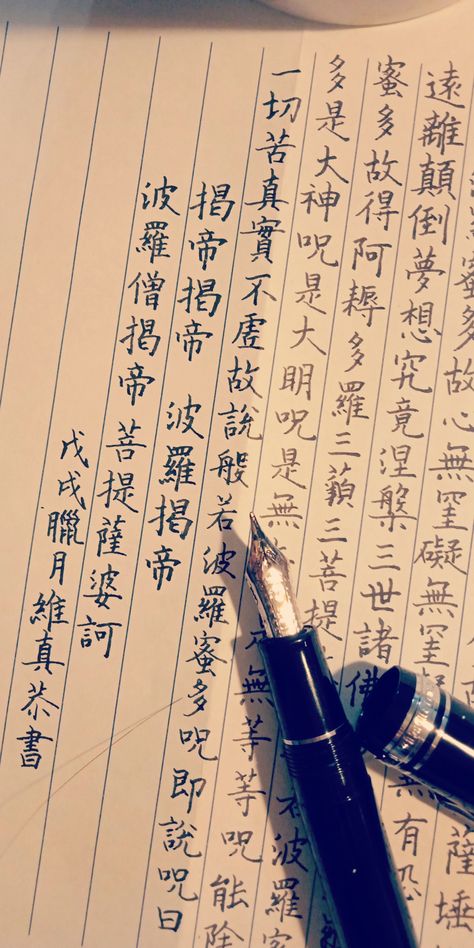 薩埵
蜜多故心無罣礙無罣 無有恐
遠離顛倒夢想究竟涅槃三世諸佛
蜜多故得阿耨多羅三藐三菩提 波羅
多是大神呪是大明呪是無 無等等呪能除
一切苦真實不虛故說般若波羅蜜多呪即說呪曰
揭帝揭帝 波羅揭帝
波羅僧揭帝 菩提薩婆訶
戊戌臘月維真恭書